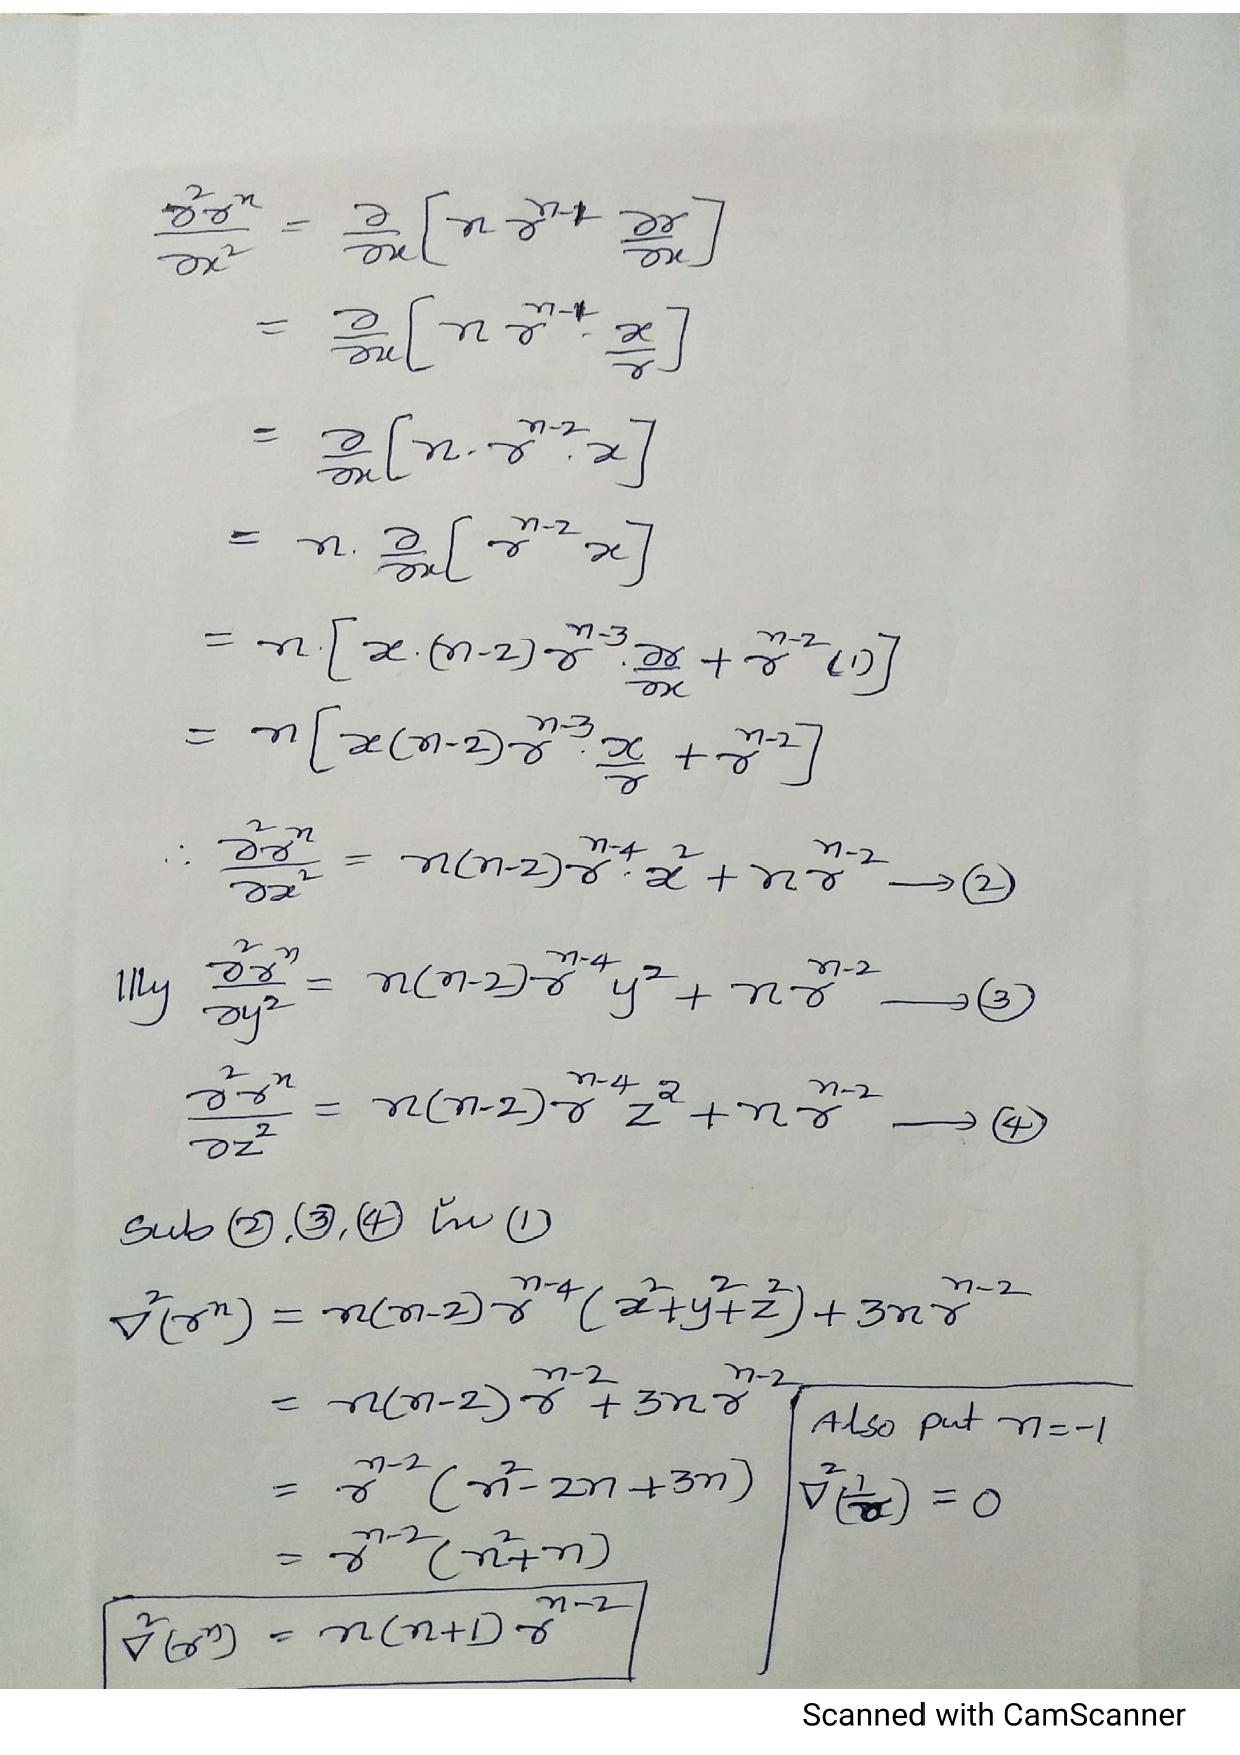 ∂²rⁿ/∂x² = ∂/∂x [n rⁿ⁻¹ ∂r/∂x]
= ∂/∂x [n rⁿ⁻¹ · x/r]
= ∂/∂x [n · rⁿ⁻² · x]
= n · ∂/∂x [rⁿ⁻² x]
= n · [x · (n-2) rⁿ⁻³ · ∂r/∂x + rⁿ⁻² (1)]
= n [x(n-2) rⁿ⁻³ · x/r + rⁿ⁻²]
∴ ∂²rⁿ/∂x² = n(n-2) rⁿ⁻⁴ · x² + n rⁿ⁻² → (2)
Illy ∂²rⁿ/∂y² = n(n-2) rⁿ⁻⁴ y² + n rⁿ⁻² → (3)
∂²rⁿ/∂z² = n(n-2) rⁿ⁻⁴ z² + n rⁿ⁻² → (4)
Sub (2), (3), (4) in (1)
∇²(rⁿ) = n(n-2) rⁿ⁻⁴ (x²+y²+z²) + 3n rⁿ⁻²
= n(n-2) rⁿ⁻² + 3n rⁿ⁻²
= rⁿ⁻² (n² - 2n + 3n)
= rⁿ⁻² (n²+n)
∇²(rⁿ) = n(n+1) rⁿ⁻²
Also put n = -1
∇²(1/r) = 0
Scanned with CamScanner